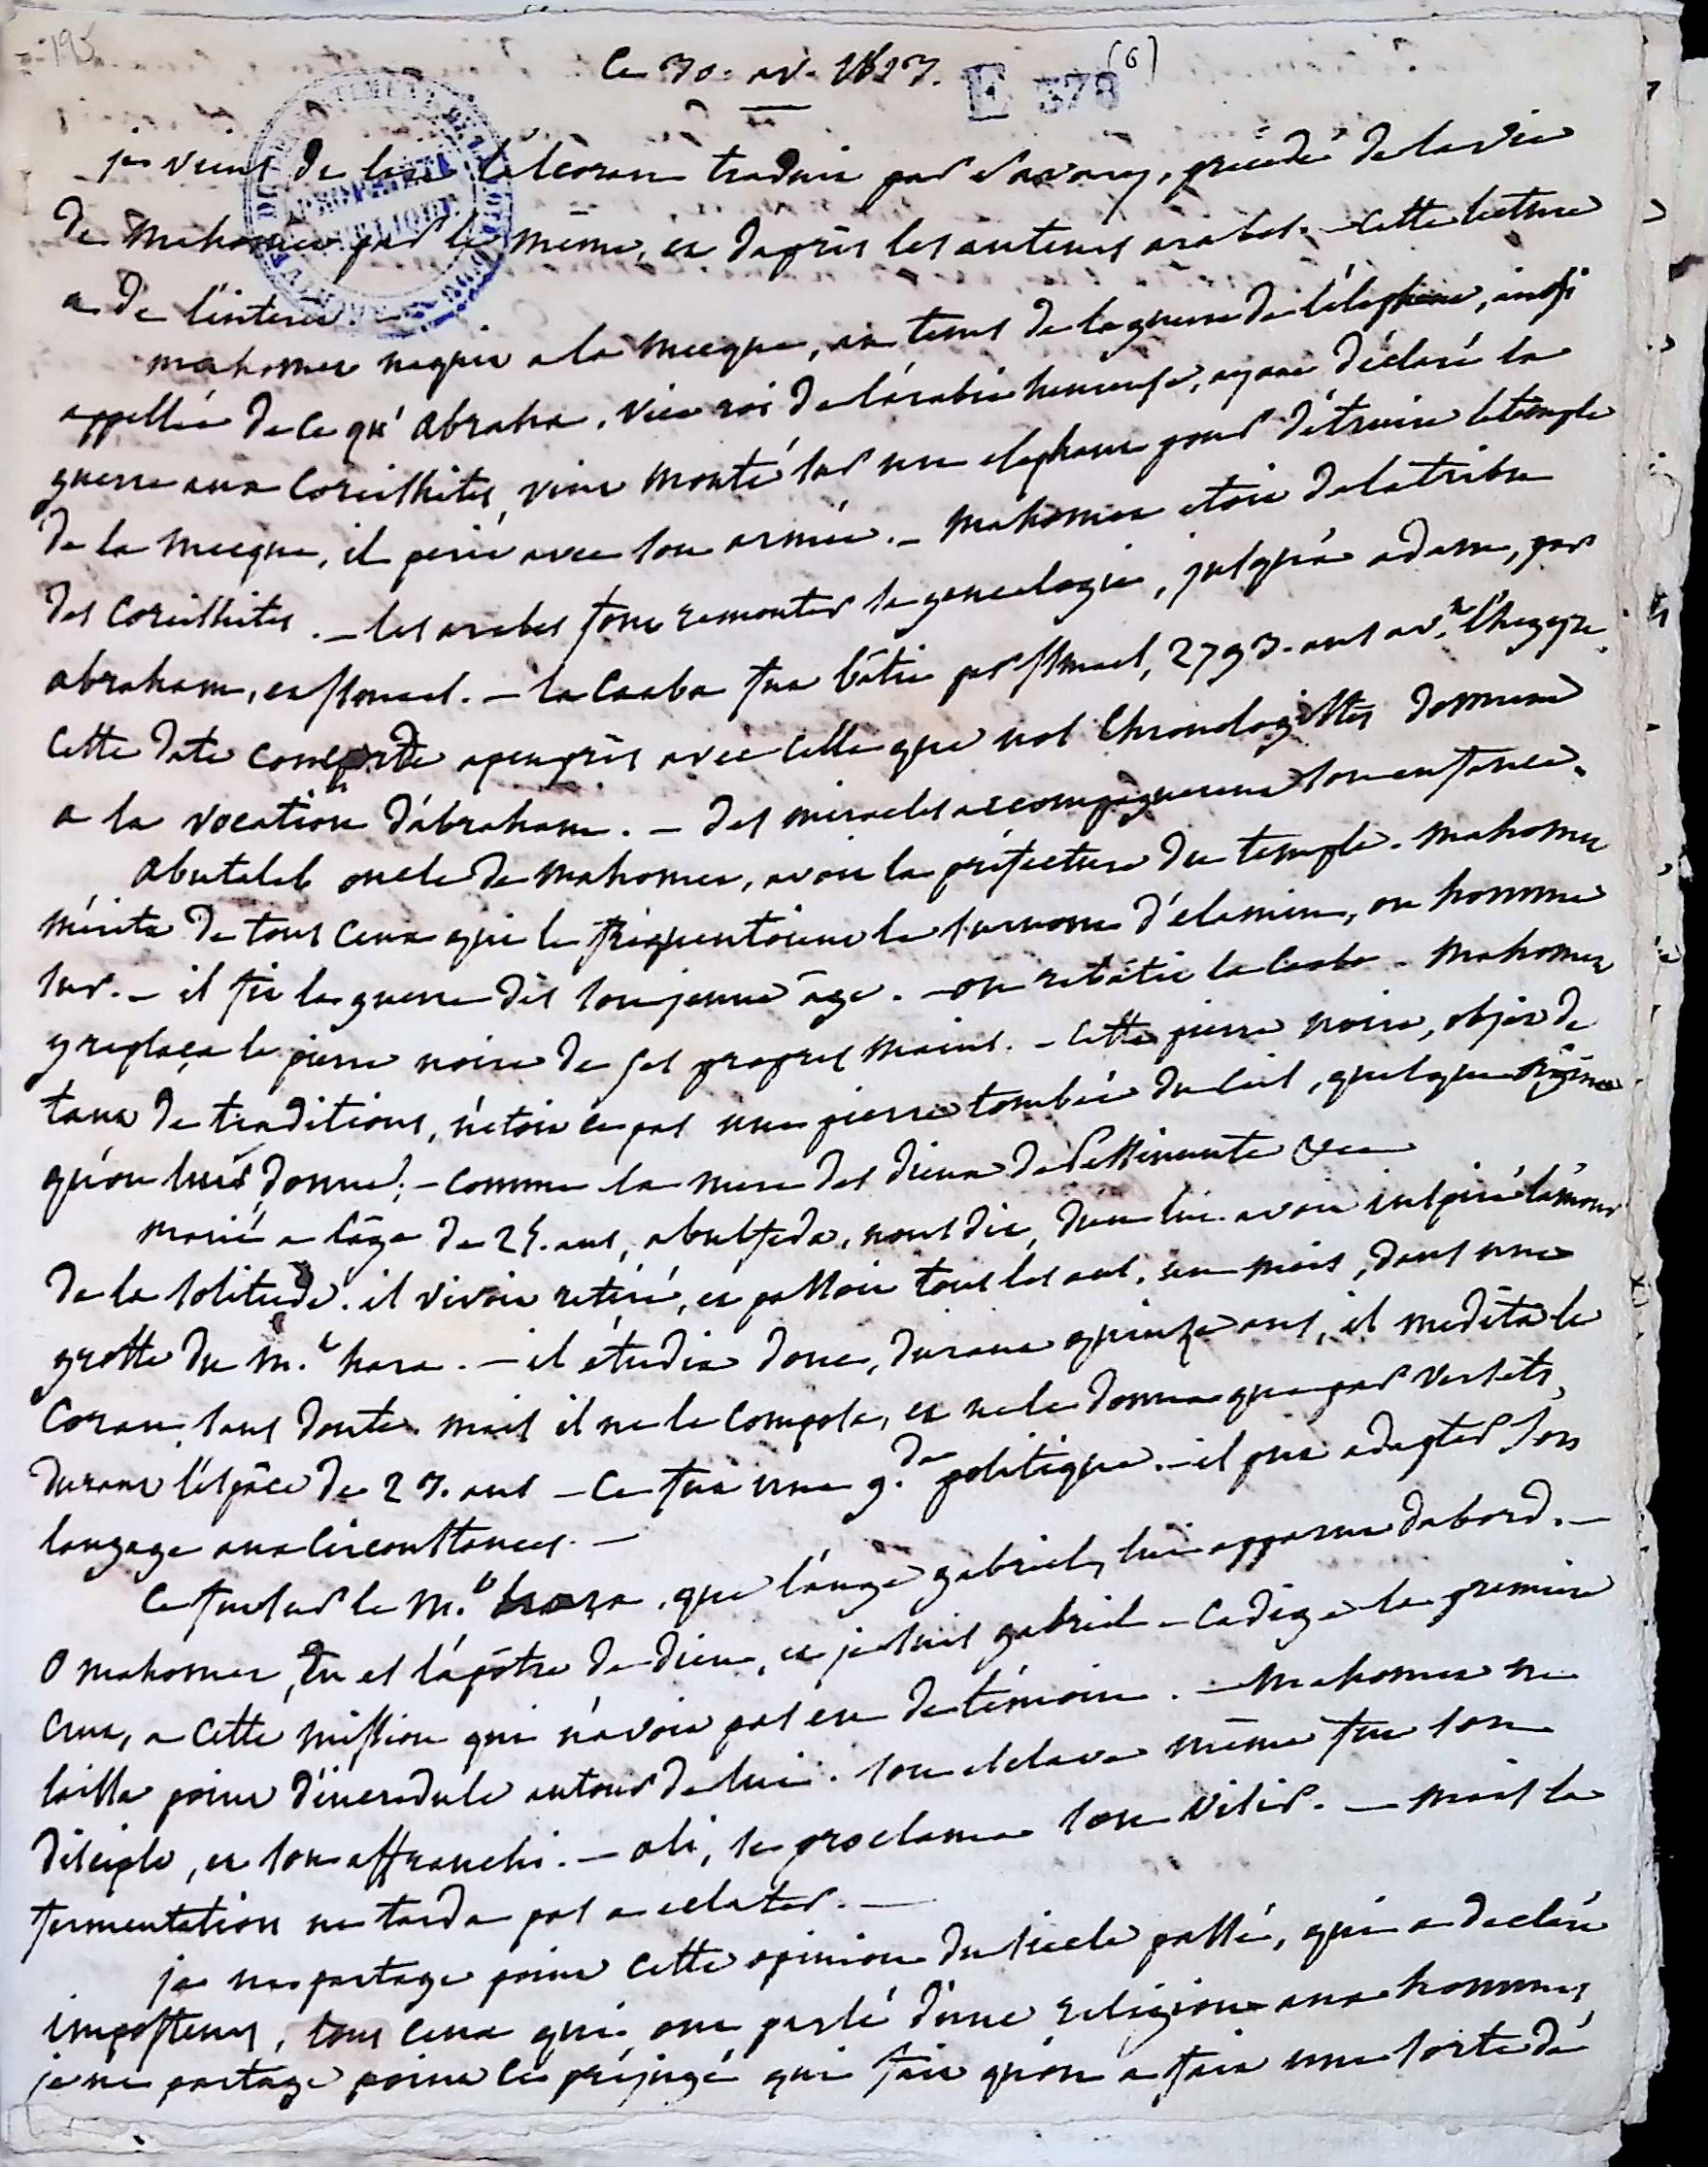 195
Ce 30. av. 1823. (6)
E 378
je viens de lire l'alcoran traduit par Savary, précédé de la vie
de Mahomet par le même, et d'après les auteurs arabes. - Cette lecture
a de l'interêt. -
mahomet naquit a la mecque, au tems de la guerre de l'éléphant, ainsi
appellée de ce qu'abraha, vice roi de l'arabie heureuse, ayant déclaré la
guerre aux Coreishites, vint monté sur un elephant pour détruire le temple
de la mecque, il périt avec son armée. - Mahomet etoit de la tribu
des Coreishites. - les arabes font remonter sa genealogie, jusqu'à adam, par
abraham, et ismael. - la Caaba fut bâtie par ismael, 2793. ans avt. l'hegyre.
Cette date concorde apeuprès avec celle que nos Chronologistes donnent
a la vocation d'abraham. - des miracles accompagnerent son enfance.
abutaleb oncle de mahomet, avoit la préfecture du temple. mahomet
mérita de tous ceux qui le fréquentoient le surnom d'elamin, ou homme
sur. - il fit la guerre dès son jeune âge. - on rebâtit la Caaba - Mahomet
y replaça la pierre noire de ses propres mains. - Cette pierre noire, objet de
tant de traditions, n'étoit ce pas une pierre tombée du ciel, quelque origine
qu'on lui donne; - comme la mere des dieux de Pessinunte &c
marié a l'âge de 25. ans, abulfeda, nous dit, dieu lui avoit inspiré l'amour
de la solitude. il vivoit retiré, et passoit tous les ans, un mois, dans une
grotte du m.t hara. - il étudia donc, durant quinze ans, il médita le
Coran, sans doute. mais il ne le composa, et ne le donna que par versets,
durant l'espace de 23. ans - Ce fut une g.de politique. - il put adapter son
langage aux circonstances. -
Ce fut sur le m.t hara, que l'ange gabriel, lui apparut dabord. -
O mahomet, tu es l'apôtre de dieu, et je suis gabriel - Cadige la premiere
crut, a cette mission qui n'avoit pas eu de témoin. - Mahomet ne
laissa point d'incredule autour de lui. son esclave même fut son
disciple, et son affranchi. - ali, se proclama son visir. - mais la
fermentation ne tarda pas a eclater. -
je ne partage point cette opinion du siecle passé, qui a declaré
imposteurs, tous ceux qui ont parlé d'une religion aux hommes
je ne partage point ce préjugé qui fait qu'on a fait une sorte d'é